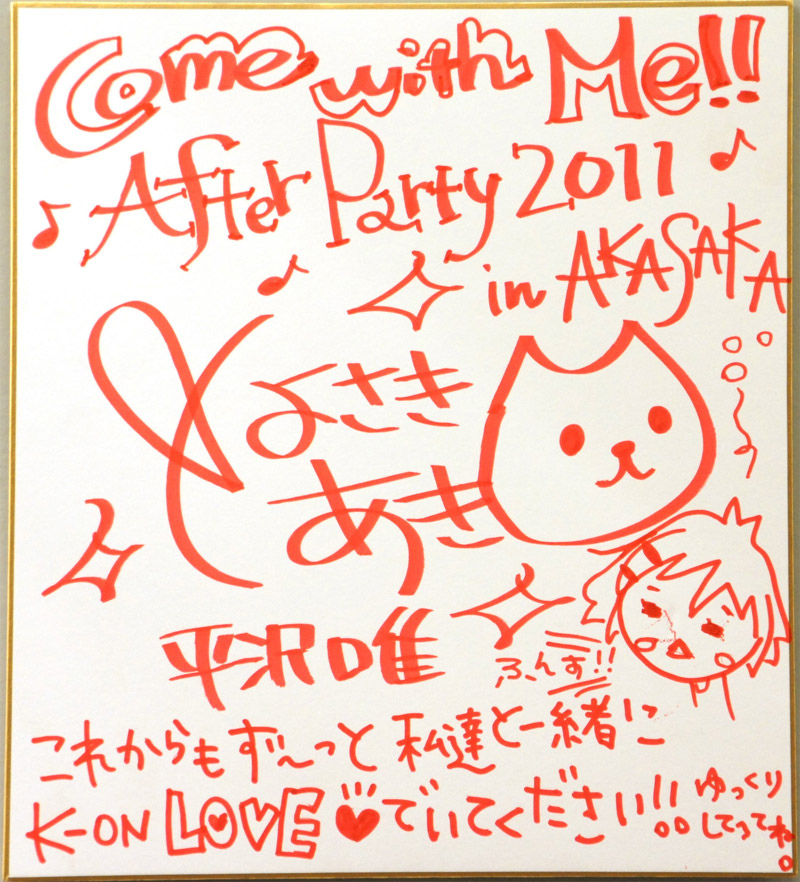 Come with Me!!
After Party 2011
in AKASAKA
とよさき
あき
平沢唯
ふんす!!
これからもず〜っと私達と一緒に
K-ON LOVE でいてください!!
ゆっくり
してってね。